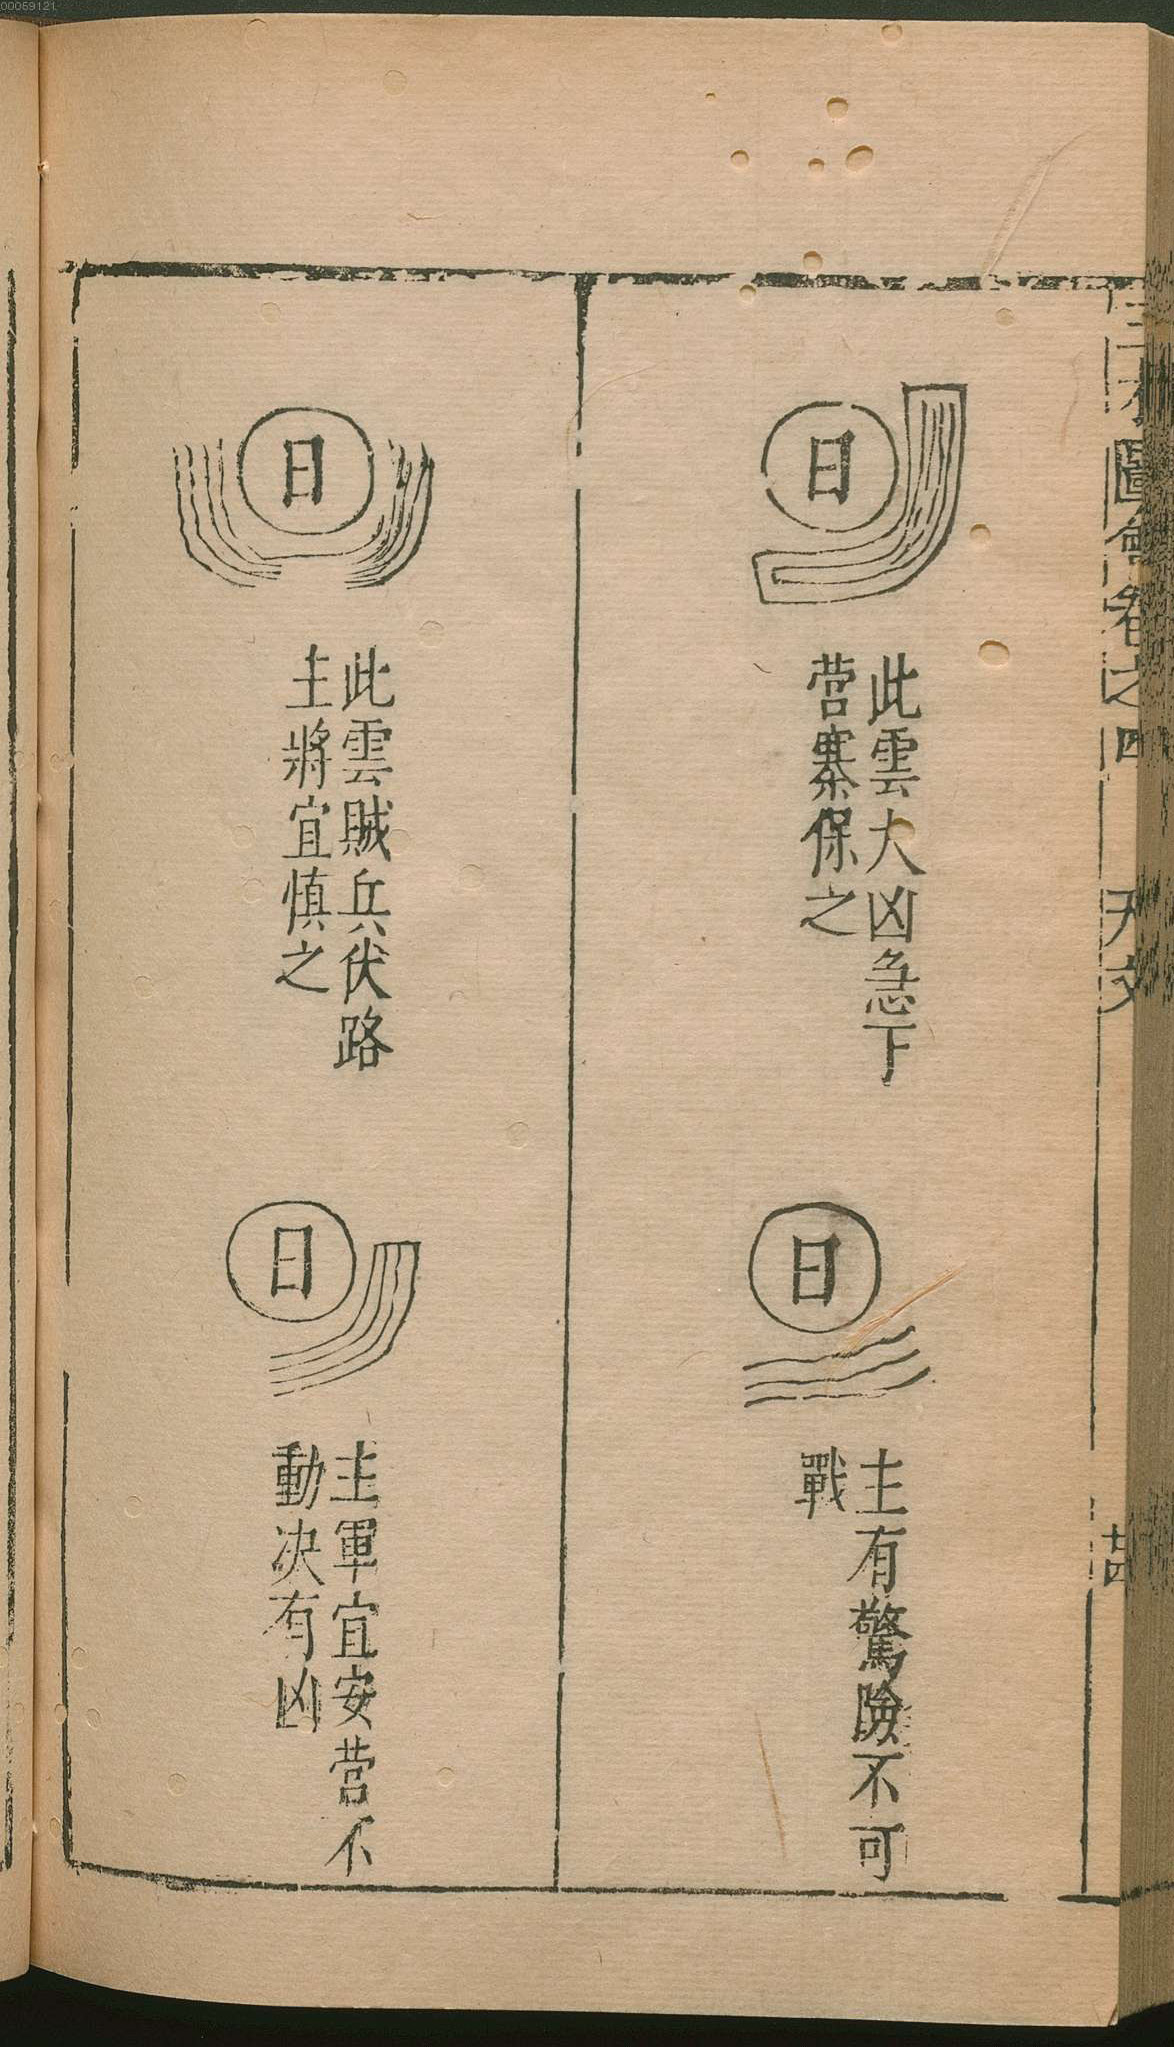 00059121
三才圖會卷之四
天文
廿四
日
此雲大凶急下
营寨保之
日
主有驚險不可
戰
日
此雲賊兵伏路
主將宜慎之
日
主軍宜安营不
動决有凶